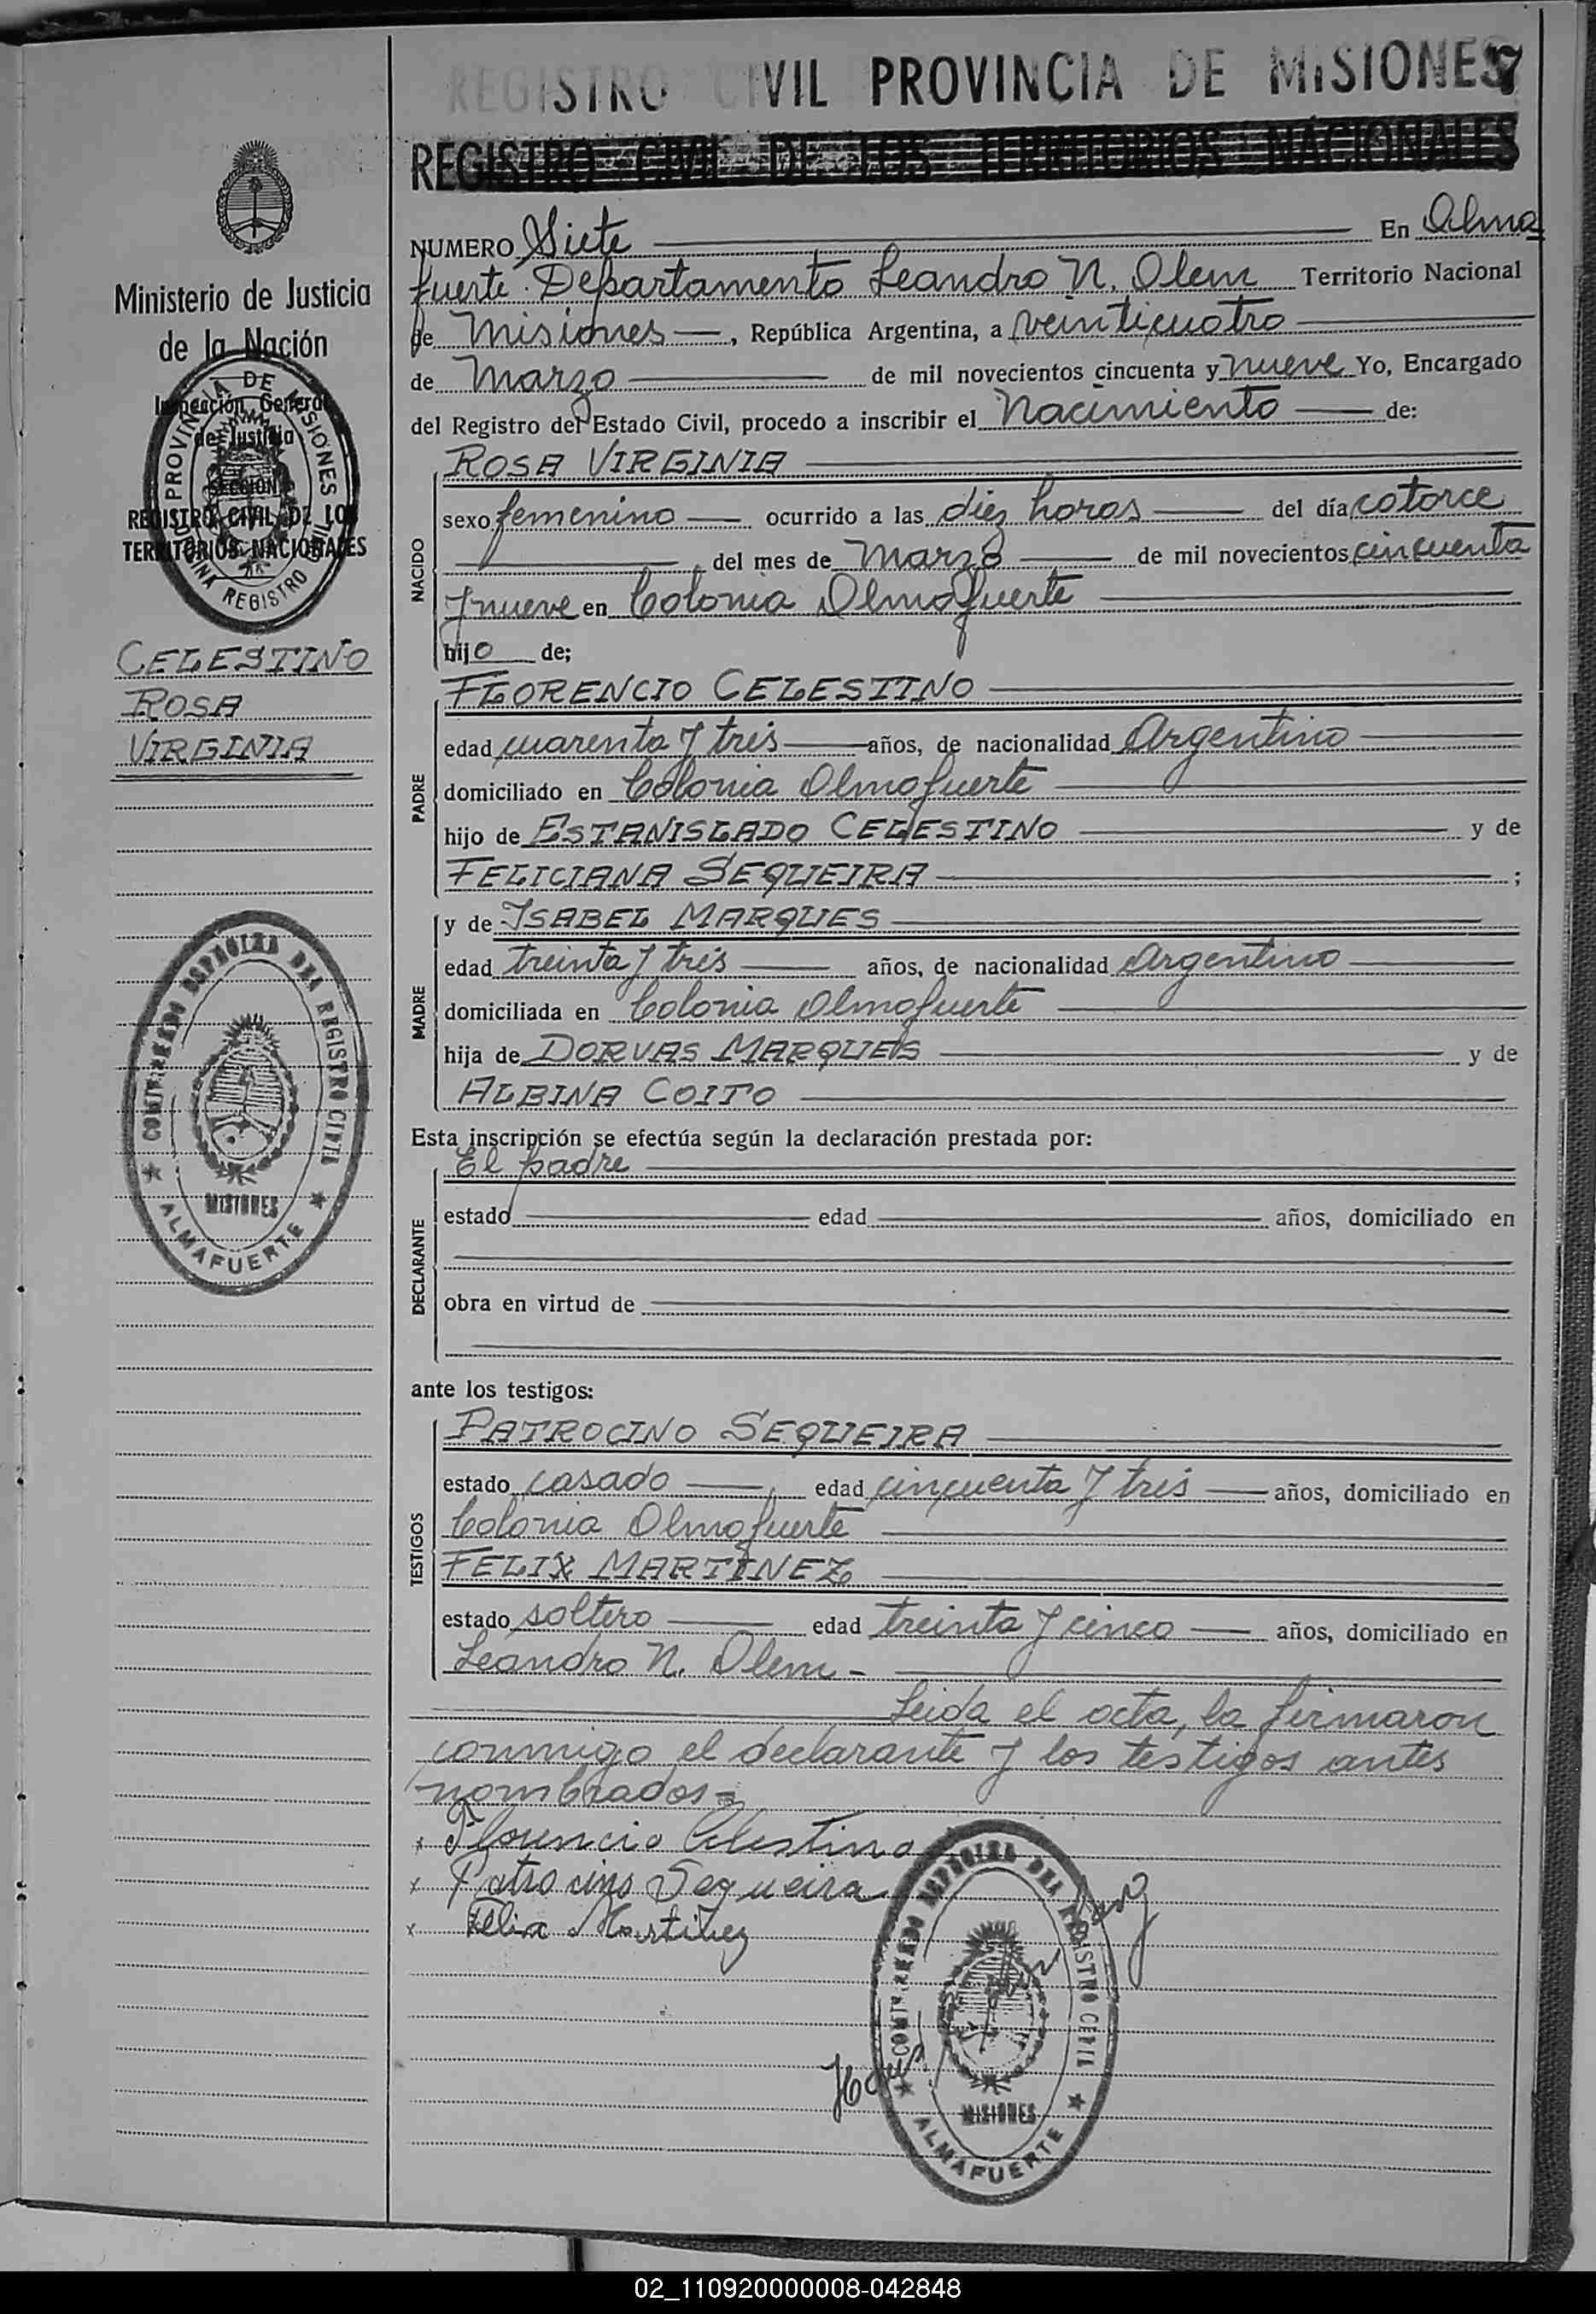 REGISTRO CIVIL PROVINCIA DE MISIONES
7
REGISTRO CIVIL DE LOS TERRITORIOS NACIONALES
Ministerio de Justicia
de la Nación
Inspección General
de Justicia
SECCION
REGISTRO CIVIL DE LOS
TERRITORIOS NACIONALES
PROVINCIA DE MISIONES
REGISTRO CIVIL
CELESTINO
ROSA
VIRGINIA
DEL REGISTRO CIVIL
MISIONES
★ ALMAFUERTE ★
NUMERO Siete En Alma
fuerte. Departamento Leandro N. Alem Territorio Nacional
de Misiones, República Argentina, a veinticuatro
de Marzo de mil novecientos cincuenta y nueve Yo, Encargado
del Registro del Estado Civil, procedo a inscribir el Nacimiento de:
NACIDO
ROSA VIRGINIA
sexo femenino ocurrido a las diez horas del día catorce
del mes de Marzo de mil novecientos cincuenta
y nueve en Colonia Almafuerte
hijo de;
PADRE
FLORENCIO CELESTINO
edad cuarenta y tres años, de nacionalidad Argentino
domiciliado en Colonia Almafuerte
hijo de ESTANISLADO CELESTINO y de
FELICIANA SEQUEIRA ;
MADRE
y de ISABEL MARQUES
edad treinta y tres años, de nacionalidad Argentino
domiciliada en Colonia Almafuerte
hija de DORVAS MARQUES y de
ALBINA COITO
Esta inscripción se efectúa según la declaración prestada por:
DECLARANTE
El padre
estado edad años, domiciliado en
obra en virtud de
ante los testigos:
TESTIGOS
PATROCINO SEQUEIRA
estado casado edad cincuenta y tres años, domiciliado en
Colonia Almafuerte
FELIX MARTINEZ
estado soltero edad treinta y cinco años, domiciliado en
Leandro N. Alem -
Leida el acta, la firmaron
conmigo el declarante y los testigos antes
nombrados =
x Florencio Celestino
x Patrocino Sequeira
x Felix Martinez
DEL REGISTRO CIVIL
MISIONES
★ ALMAFUERTE ★
02_110920000008-042848